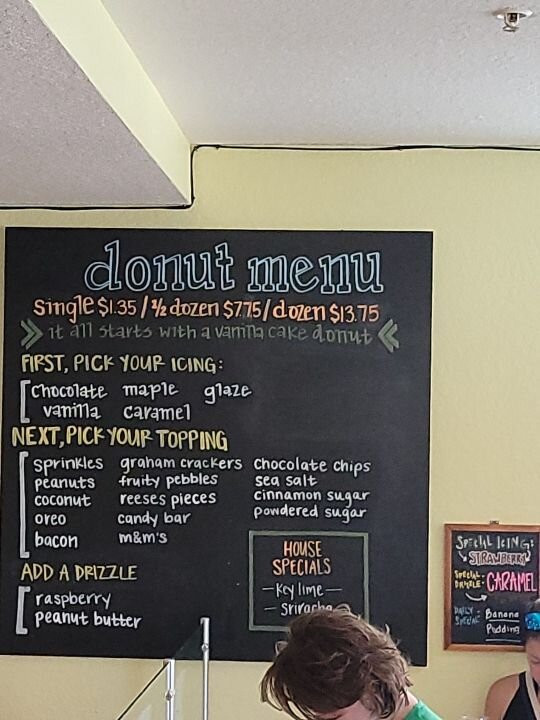 donut menu
single $1.35 / ½ dozen $7.75 / dozen $13.75
it all starts with a vanilla cake donut
FIRST, PICK YOUR ICING:
chocolate maple glaze
vanilla caramel
NEXT, PICK YOUR TOPPING
sprinkles graham crackers chocolate chips
peanuts fruity pebbles sea salt
coconut reeses pieces cinnamon sugar
oreo candy bar powdered sugar
bacon m&m's
HOUSE
SPECIALS
- Key lime -
- Sriracha
ADD A DRIZZLE
raspberry
peanut butter
SPECIAL ICING:
STRAWBERRY
SPECIAL
DRIZZLE: CARAMEL
DAILY
SPECIAL: Banana
Pudding